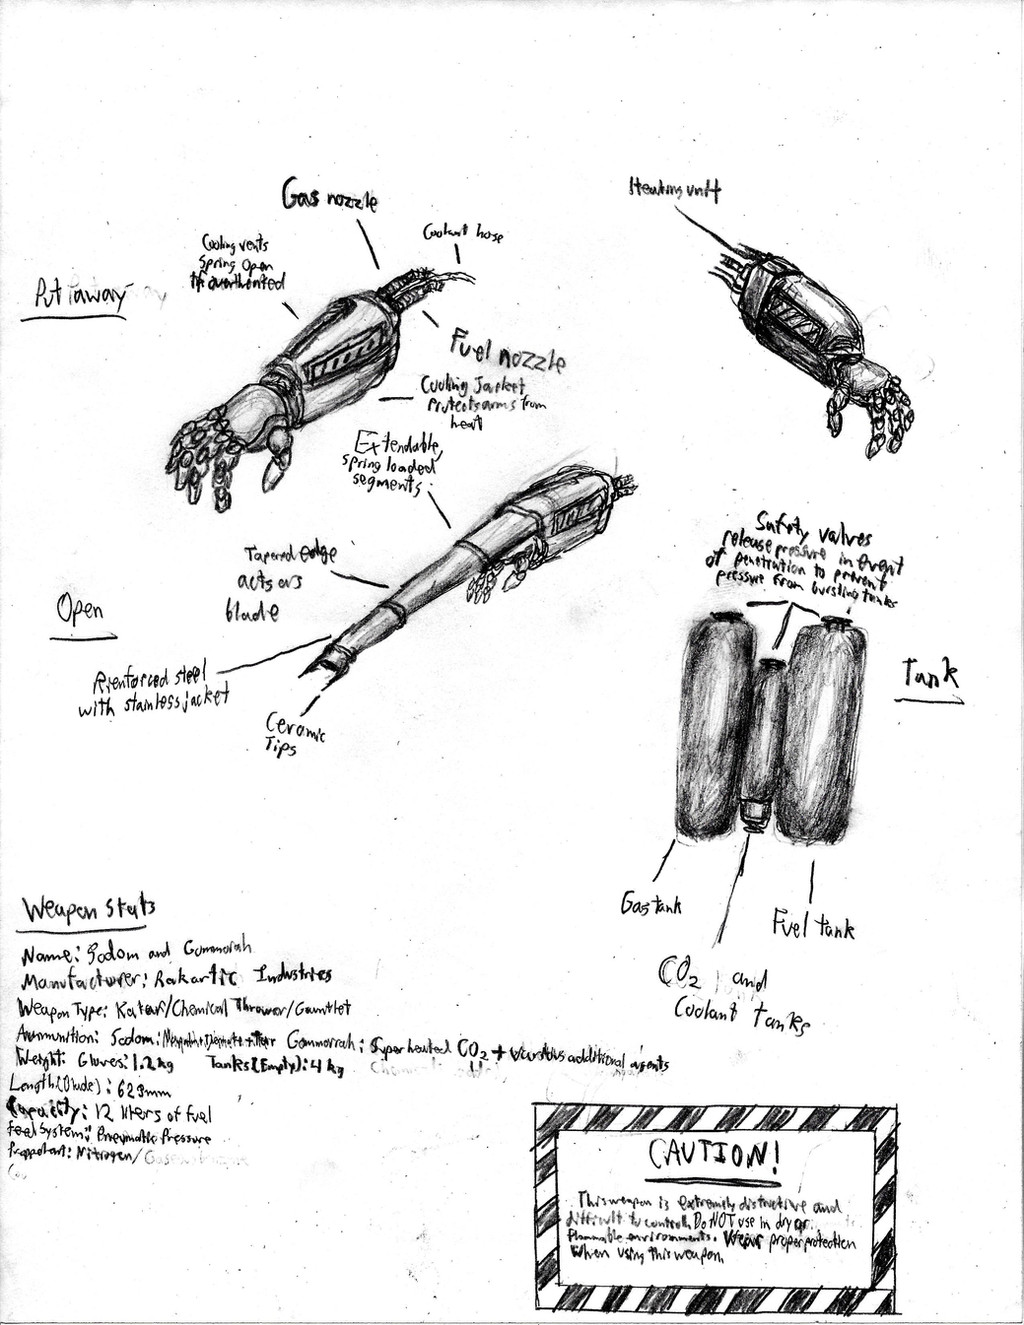 Gas nozzle
Heating unit
Coolant hose
Cooling vents
spring open
if overheated
Put away
Fuel nozzle
Cooling Jacket
protects arms from
heat
Extendable,
spring loaded
segments
Safety valves
release pressure in event
of penetration to prevent
pressure from bursting tanks
Tapered edge
acts as
blade
Open
Rienforced steel
with stainless jacket
Ceramic
Tips
Tank
Gas tank
Fuel tank
CO2 and
Coolant tanks
Weapon Stats
Name: Sodom and Gommorah
Manufacturer: Rakartic Industries
Weapon Type: Katar/Chemical Thrower/Gauntlet
Ammunition: Sodom: Gommorrah: Superheated CO2 + various additional agents
Weight: Gloves: 1.2kg Tanks(Empty): 4kg
Length(Blade): 623mm
Capacity: 12 liters of fuel
Feed System: Pneumatic Pressure
Propellant: Nitrogen/
CAUTION!
This weapon is extremely distructive and
difficult to control. Do NOT use in dry or
flammable environments. Wear proper protection
when using this weapon.